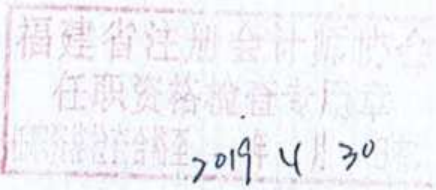 福建省注册会计师协会
任职资格检查专用章
2019年4月30